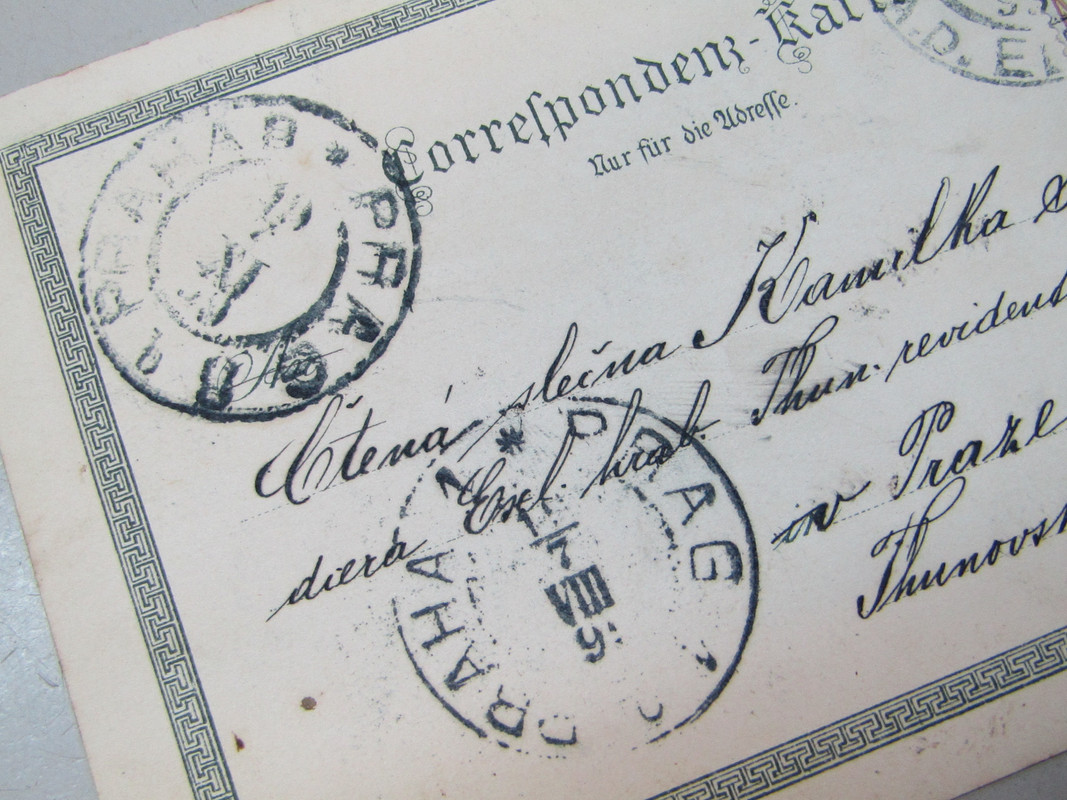 Correspondenz-Kart
Nur für die Adresse.
P. EI
PRAHA B * PRAG B
An
Ctená slečna Kamilka
diera Exel. hrab. Thun. revident
in Praze
Thunovsk
PRAHA 1 * PRAG
7
VIII